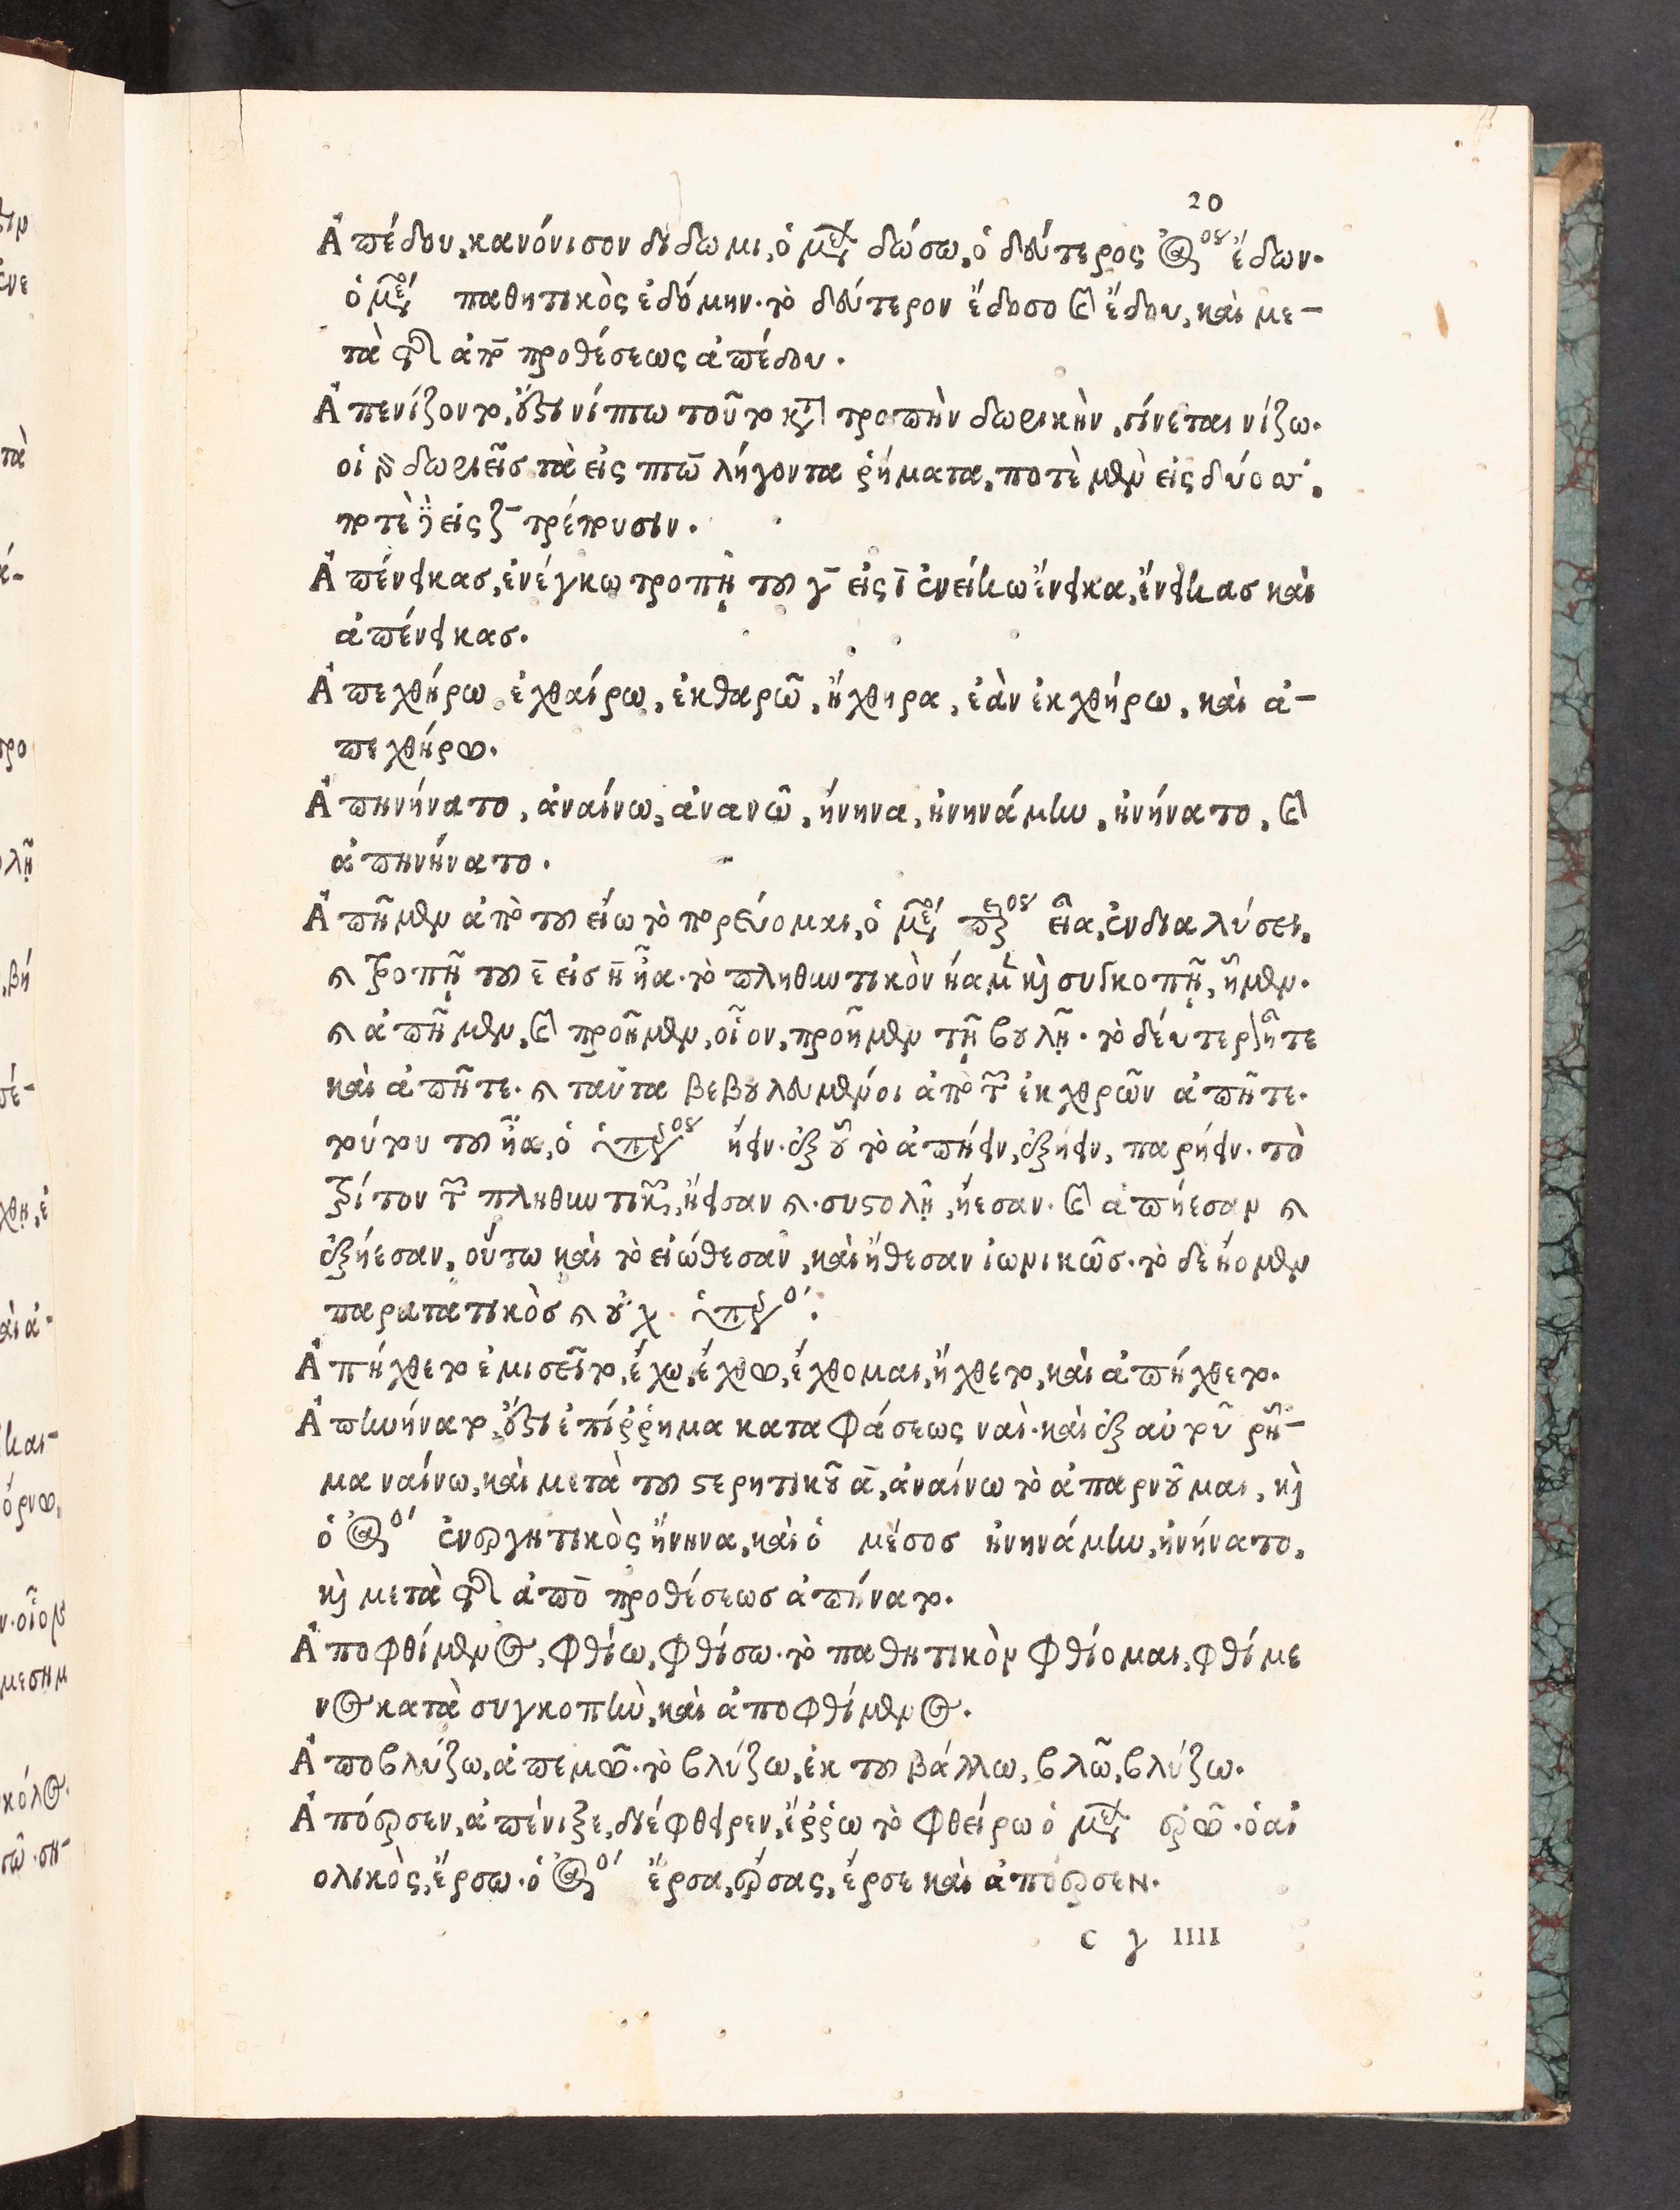 20
Ἀπέδου, κανόνισον δίδωμι, ὁ μελ δώσω, ὁ δεύτερος ἀόος ἔδων.
παθητικὸς ἐδόμην. τὸ δεύτερον ἔδοσο καὶ ἔδου, καὶ με-
τὰ τῆς ἀπὸ προθέσεως ἀπέδου.
Ἀπενίζοντο, ἔστι νίπτω τοῦτο κατὰ τροπὴν δωρικὴν, γίνεται νίζω.
οἱ γὰρ δωριεῖσ τὰ εἰς πτω λήγοντα ῥήματα, ποτὲ μὲν εἰς δύο σσ,
ποτὲ δὲ εἰς ζ τρέπουσιν.
Ἀπένεικασ, ἐνέγκω τροπῇ τοῦ γ εἰς ι ἐνείκω ἔνεικα, ἔνεικασ καὶ
ἀπένεικασ.
Ἀπεχθήρω ἐχθαίρω, ἐκθαρῶ, ἤχθηρα, ἐὰν ἐκχθήρω, καὶ ἀ-
πεχθήρω.
Ἀπηνήνατο, ἀναίνω, ἀνανῶ, ήνηνα, ἠνηνάμην, ἠνήνατο, καὶ
ἀπηνήνατο.
Ἀπῆμεν ἀπὸ τοῦ είω τὸ πορεύομαι, ὁ εἶα, ἐν διαλύσει,
καὶ τροπῇ τοῦ ε εἰσ η ἦα. τὸ πληθυντικὸν ήαμεν καὶ συγκοπῇ, ἦμεν.
καὶ ἀπῆμεν, καὶ προῆμεν, οἷον, προῆμεν τῇ βουλῇ. τὸ δεύτερον ἦτε
καὶ ἀπῆτε. καὶ ταῦτα βεβουλευμένοι ἀπὸ τῶν ἐκχθρῶν ἀπῆτε.
τούτου τοῦ ἦα, ὁ ήειν. ἐξ οὗ τὸ ἀπήειν, ἐξήειν, παρήειν. τὸ
τρίτον τῶν πληθυντικῶν, ἤεισαν καὶ. συστολῇ, ήεσαν. καὶ ἀπήεσαν καὶ
ἐξήεσαν, οὕτω καὶ τὸ εἰώθεσαν, καὶ ἤθεσαν ἰωνικῶσ. τὸ δε ήομεν
παρατατικὸσ καὶ οὐχ
Ἀπήχθετο ἐμισεῖτο, έχω, έχθω, έχθομαι, ἤχθετο, καὶ ἀπήχθετο.
Ἀπηνήνατο, ἔστι ἐπίῤῥημα καταφάσεως ναὶ. καὶ ἐξ αὐτοῦ ῥῆ-
μα ναίνω, καὶ μετὰ τοῦ στερητικοῦ α, ἀναίνω τὸ ἀπαρνοῦμαι, καὶ
ὁ ἀόος ἐνεργητικὸς ἤνηνα, καὶ ὁ μέσοσ ἠνηνάμην, ἠνήνατο,
καὶ μετὰ τῆς ἀπὸ προθέσεωσ ἀπήνατο.
Ἀποφθίμενος, φθίω, φθίσω. τὸ παθητικὸν φθίομαι, φθίμε
νος κατὰ συγκοπὴν, καὶ ἀποφθίμενος.
Ἀποβλύζω, ἀπεμῶ. τὸ βλύζω, ἐκ τοῦ βάλλω, βλῶ, βλύζω.
Ἀπόερσεν, ἀπένιξε, διέφθειρεν, ἔῤῥω τὸ φθείρω ὁ μελ ἐρῶ. ὁ αἰ
ολικὸς, ἔρσω. ὁ ἀόος ἔρσα, έρσας, έρσε καὶ ἀπόερσεν.
c γ IIII